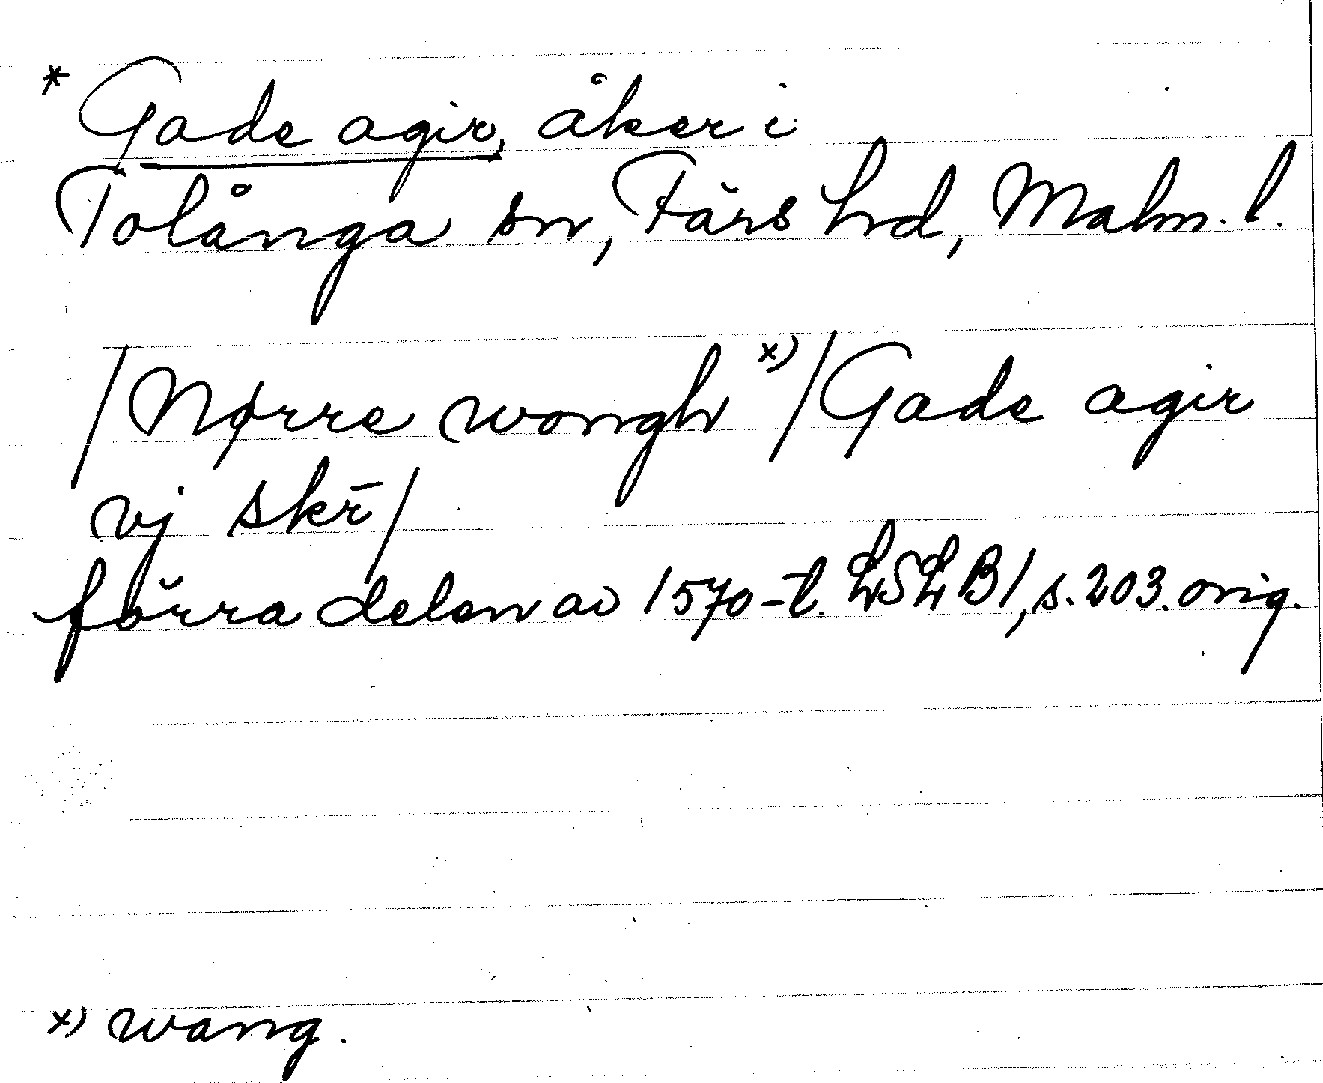 * Gade agir, åker i
Tolånga sn, Färs hd, Malm. l.
/Nørre wongh x)/ Gade agir
vj skr̄/
förra delen av 1570-t. LSLB1, s. 203. orig.
x) wang.